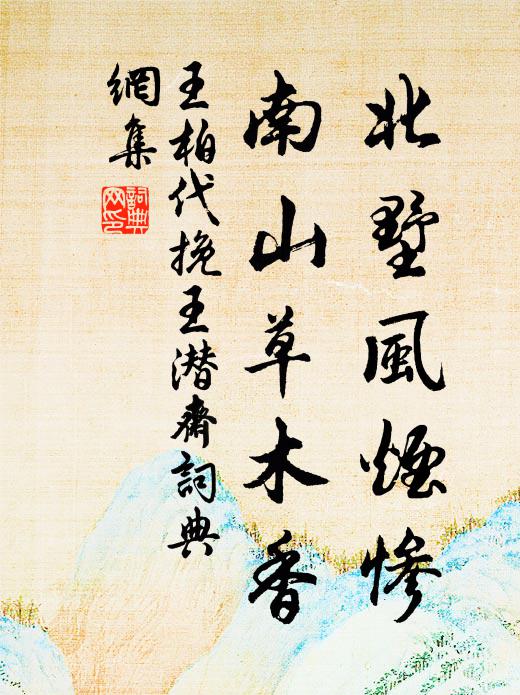 北墅風煙慘
南山草木香
王柏代挽王潛齋詞典
網集
詞典網印